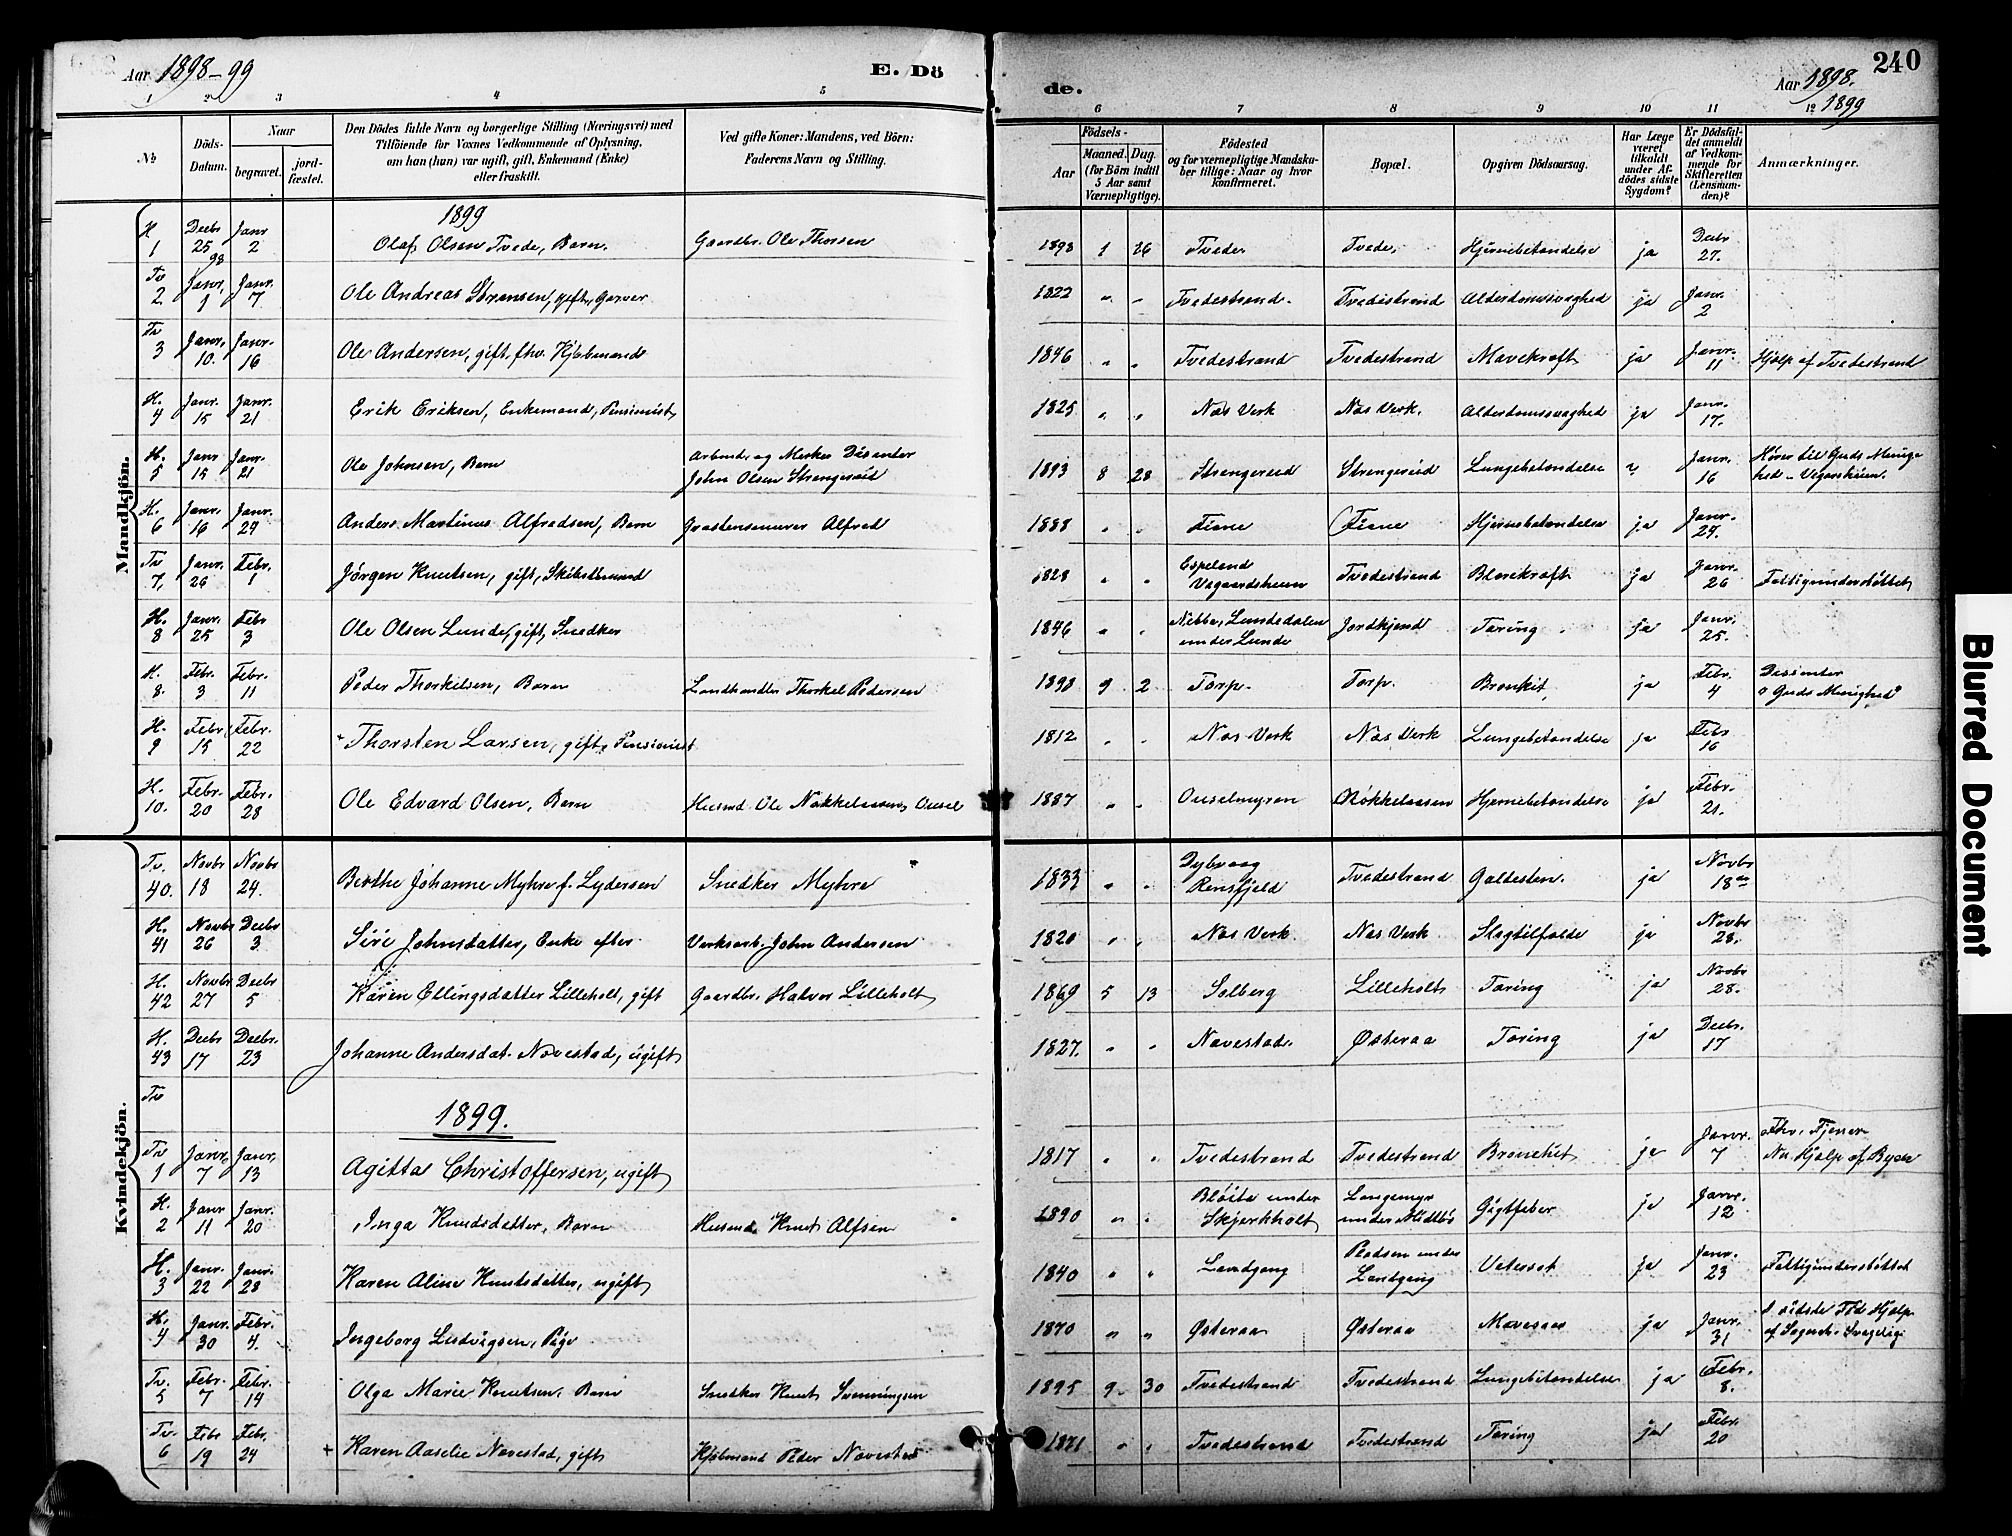 Aar 1898-99
E. Dö
de.
240
Aar 1898.
1899
1 2 3 4 5 6 7 8 9 10 11 12
No
Döds-
Datum.
Naar
begravet.
jord-
fæstet.
Den Dödes fulde Navn og borgerlige Stilling (Næringsvei) med
Tilföiende for Voxnes Vedkommende af Oplysning,
om han (hun) var ugift, gift, Enkemand (Enke)
eller fraskilt.
Ved gifte Koner: Mandens, ved Börn:
Faderens Navn og Stilling.
Födsels-
Aar
Maaned. Dag.
(for Börn indtil
5 Aar samt
Værnepligtige).
Födested
og for værnepligtige Mandska-
ber tillige: Naar og hvor
konfirmeret.
Bopæl.
Opgiven Dödsaarsag.
Har Læge
været
tilkaldt
under Af-
dödes sidste
Sygdom?
Er Dödsfal-
det anmeldt
af Vedkom-
mende for
Skifteretten
(Lensman-
den)?
Anmærkninger.
Mandkjön.
1899
H 1 Decbr 25 98 Janr 2 Olaf Olsen Tvede, Barn. Gaardbr. Ole Thorsen 1898 1 26 Tvede Tvede. Hjernebetændelse ja Decbr 27.
Tv 2 Janr. 1 Janr. 7 Ole Andreas Sörensen, gift, Garver 1822 " " Tvedestrand. Tvedestrand Alderdomssvaghed ja Janr. 2
Tv 3 Janr. 10. Janr. 16 Ole Andersen, gift, fhv. Kjöbmand 1846 " " Tvedestrand Tvedestrand Mavekræft ja Janr. 11 Hjælp af Tvedestrand
H. 4 Janr. 15 Janr. 21 Erik Eriksen, Enkemand, Pensionist 1825 " " Næs Verk Næs Verk. Alderdomssvaghed ja Janr. 17.
H. 5 Janr 15 Janr. 21 Ole Johnsen, Barn Arbmd. og Dissenter John Olsen Strengereid 1893 8 28 Strengereid Strengereid Lungebetændelse Janr. 16 Hörer til Guds Menighed Vegarsheien.
H. 6 Janr. 16 Janr. 24 Anders Martinus Alfredsen, Barn Alfred 1888 " " Fiane Fiane Hjernebetændelse ja Janr. 24.
Tv 7. Janr. 26 Febr. 1 Jörgen Knutsen, gift, Skibstömmermand 1828 " " Espeland Vegaardsheien Tvedestrand Blærekræft ja Janr. 26 Fattigunderstöttet
H. 8 Janr. 25 Febr 3 Ole Olsen Lunde, gift, Snedker 1846 " " Lundedalen under Lunde Jordkjend Tæring ja Janr. 25.
H. 8. Febr. 3 Febr. 11 Peder Thorkilsen, Barn Landhandler Thorkel Pedersen 1898 9 2 Torp. Torp. Bronkit ja Febr. 4 Dissenter "Guds Menighed"
H. 9 Febr. 15 Febr. 22 + Thorsten Larsen, gift, Pensionist 1812 " " Næs Verk Næs Verk Lungebetændelse ja Febr 16
H. 10. Febr. 20 Febr. 28 Ole Edvard Olsen, Barn Husmd. Ole 1887 " " Ouselmyren Hjernebetændelse ja Febr. 21.
Kvindekjön.
Tv. 40. Novbr 18 Novbr 24. Berthe Johanne Myhre f. Lydersen Snedker Myhre 1833 " " Dybvaag Rensfjeld Tvedestrand Galdesten. ja Novbr 18
H. 41 Novbr 26 Decbr 3 Siri Johnsdatter, Enke efter Verksarb. John Andersen 1820 " " Næs Verk. Næs Verk Slagtilfælde ja Novbr 28.
H. 42 Novbr 27 Decbr 5 Karen Ellingsdatter Lilleholt, gift Gaardbr. Halvor Lilleholt 1869 5 13 Solberg Lilleholt Tæring ja Novbr 28.
H. 43 Decbr 17 Decbr. 23 Johanne Andersdat. Navestad, ugift 1827. " " Navestad. Østeraa Tæring ja Decbr. 17
Tv
1899.
Tv 1 Janr. 7 Janr. 13 Agitta Christoffersen, ugift 1817 " " Tvedestrand Tvedestrand Bronchit ja Janr. 7 Fhv. Tjener Nu Hjælp af Byen
H. 2 Janr 11 Janr. 20 Inga Knudsdatter, Barn Husmd. Knut Alfsen 1890 " " under Skjerkholt Langemyr under Midtbø Gigtfeber ja Janr. 12
H. 3 Janr. 22 Janr. 28 Karen Aline Knutsdatter, ugift 1840 " " Landgang Pladsen under Landgang Vatersot ja Janr. 23 Fattigunderstöttet
H. 4 Janr. 30 Febr. 4. Ingeborg Ludvigsen, Pige 1870 " " Østeraa Østeraa Mavesaar ja Janr. 31 Hjælp af
Tv. 5 Febr. 7 Febr. 14 Olga Marie Knutsen, Barn Snedker Knut Svenningsen 1895 9 30 Tvedestrand Tvedestrand Lungebetændelse ja Febr. 8.
Tv. 6 Febr 19 Febr. 24 + Karen Aaselie Navestad, gift Kjöbmand Peder Navestad 1871 " " Tvedestrand Tvedestrand Tæring ja Febr. 20
Blurred Document